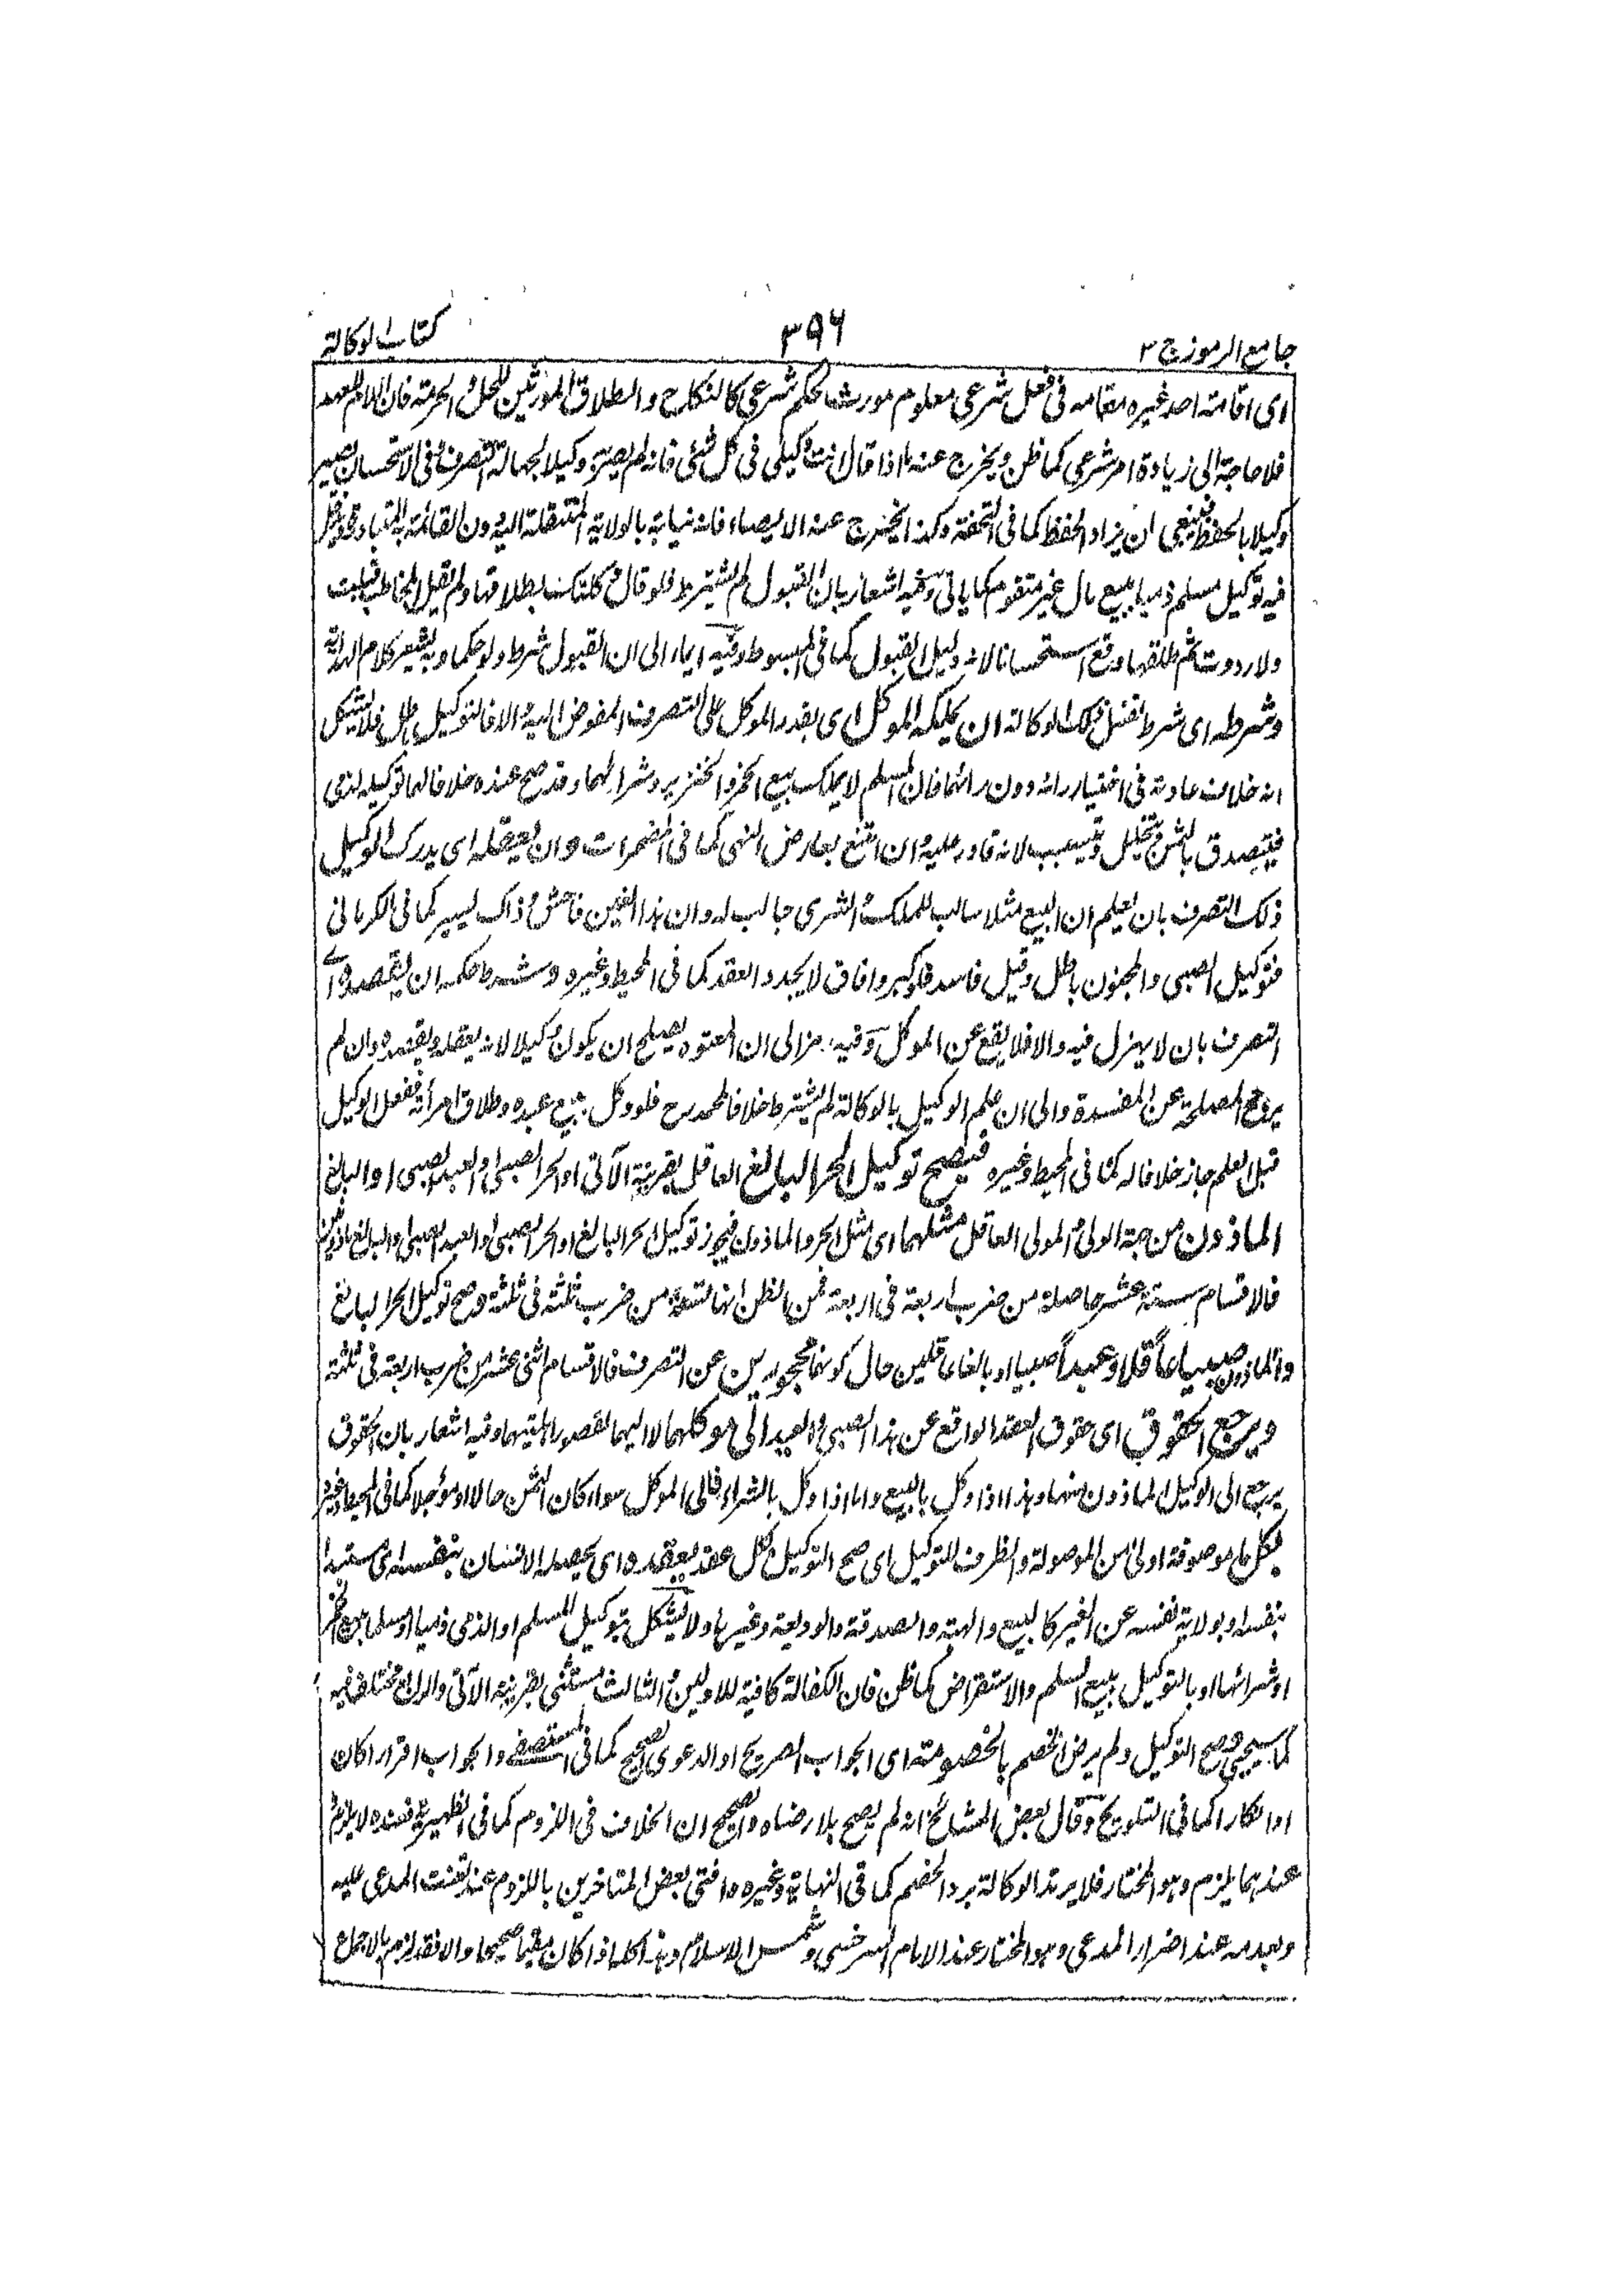 جامع الرموز ج ٢
٣٩٦
كتاب الوكالة
اى اقامة احد غيره مقامه فى فعل شرعى معلوم مورث لحكم شرعى كالنكاح والطلاق المورثين للحل والحرمة فان اللام للعهد
فلا حاجة الى زيادة امر شرعى كما ظن ويخرج عنه ما اذا قال انت وكيلى فى كل شئ فانه لم يصر وكيلا لجهالة التصرف وفى الاستحسان يصير
وكيلا بالحفظ فينبغى ان يزاد والحفظ كما فى التحفة وكذا يخرج عنه الايصاء فانه نيابة بالولاية المنتقلة اليه دون القائمة به المتبادرة ويدخل
فيه توكيل مسلم ذميا ببيع مال غير متقوم كما ياتى وفيه اشعار بان القبول لم يشترط فلو قال وكلتك بطلاقها ولم يقل المخاطب قبلت
ولا رددت ثم طلقها وقع استحسانا لانه دليل القبول كما فى المبسوط وفيه ايماء الى ان القبول شرط ولو حكما وبه يشعر كلام الهداية
وشرطه اى شرط تلك الوكالة ان يملكه الموكل اى يقدر الموكل على التصرف المفوض اليه والا فالتوكيل باطل فلا يشكل
انه خلاف عادته فى اختيار رائه دون رائهما فان المسلم لا يملك بيع الخمر والخنزير وشرائهما وقد صح عنده خلافا لهما توكيله لذمى
فيتصدق بالثمن ويتخلل ويسيب لانه قادر عليه وان امتنع بعارض النهى كما فى المضمرات وان يعقله اى يدرك الوكيل
ذلك التصرف بان يعلم ان البيع مثلا سالب للملك والشرى جالب له وان هذا الغبن فاحش وذاك يسير كما فى الكرمانى
فتوكيل الصبى والمجنون باطل وقيل فاسد فلو كبر وافاق لا يجدد العقد كما فى المحيط وغيره وشرط حكمه ان يقصده اے
التصرف بان لا يهزل فيه والا فلا يقع عن الموكل وفيه رمز الى ان المعتوه يصلح ان يكون وكيلا لانه يعقله ويقصده وان لم
يرجح المصلحة عن المفسدة والى ان علم الوكيل بالوكالة لم يشترط خلافا لمحمد رح فلو وكل ببيع عبده وطلاق امرأته ففعل الوكيل
قبل العلم جاز خلافا له كما فى المحيط وغيره فيصح توكيل الحر البالغ العاقل بقرينة الآتى او الحر الصبى والعبد الصبى او البالغ
الماذون من جهة الولى والمولى العاقل مثلهما اى مثل الحر والماذون فيجوز توكيل الحر البالغ او الحر الصبى والعبد الصبى والبالغ ماذونين
فالاقسام ستة عشر حاصلة من ضرب اربعة فى اربعة فمن الظن انها تسعة من ضرب ثلثة فى ثلثة وصح توكيل الحر البالغ
والماذون صبيا عاقلا وعبدا صبيا او بالغا عاقلين حال كونهما محجورين عن التصرف فالاقسام اثنى عشر من ضرب اربعة فى ثلثة
ويرجع الحقوق اى حقوق العقد الواقع عن هذا الصبى والعبد الى موكلهما لا اليهما لقصور اهليتهما وفيه اشعار بان الحقوق
يرجع الى الوكيل الماذون منهما وهذا اذا وكل بالبيع واما اذا وكل بالشراء فالى الموكل سواء كان الثمن حالا او مؤجلا كما فى المحيط وغيره
بكل ما موصوفة اولى من الموصولة والظرف للتوكيل اى صح التوكيل بكل عقد يعقده اى يحصله الانسان بنفسه اى مستبدا
بنفسه وبولاية نفسه عن الغير كالبيع والهبة والصدقة والوديعة وغيرها ولا يشكل بتوكيل المسلم او الذمى ذميا او مسلما ببيع الخمر
او شرائها او بالتوكيل ببيع السلم والاستقراض كما ظن فان الكفالة كافية للاولين والثالث مستثنى بقرينة الآتى والرابع مختلف فيه
كما سيجئ وصح التوكيل ولم يرض الخصم بالخصومة اى الجواب الصريح او الدعوى الصحيح كما فى المستصفے والجواب اقرارا كان
او انكارا كما فى التلويح وقال بعض المشائخ انه لم يصح بلا رضاه والصحيح ان الخلاف فى اللزوم كما فى الظهيرية فعنده لا يلزم و
عندهما يلزم وهو المختار فلا يرتد الوكالة برد الخصم كما فى النهاية وغيره وافتى بعض المتاخرين باللزوم عند تعنت المدعى عليه
وبعدمه عند اضرار المدعى وهو المختار عند الامام السرخسى وشمس الاسلام وهذا كله اذا كان مقيما صحيحا والا فقد لزم بالاجماع